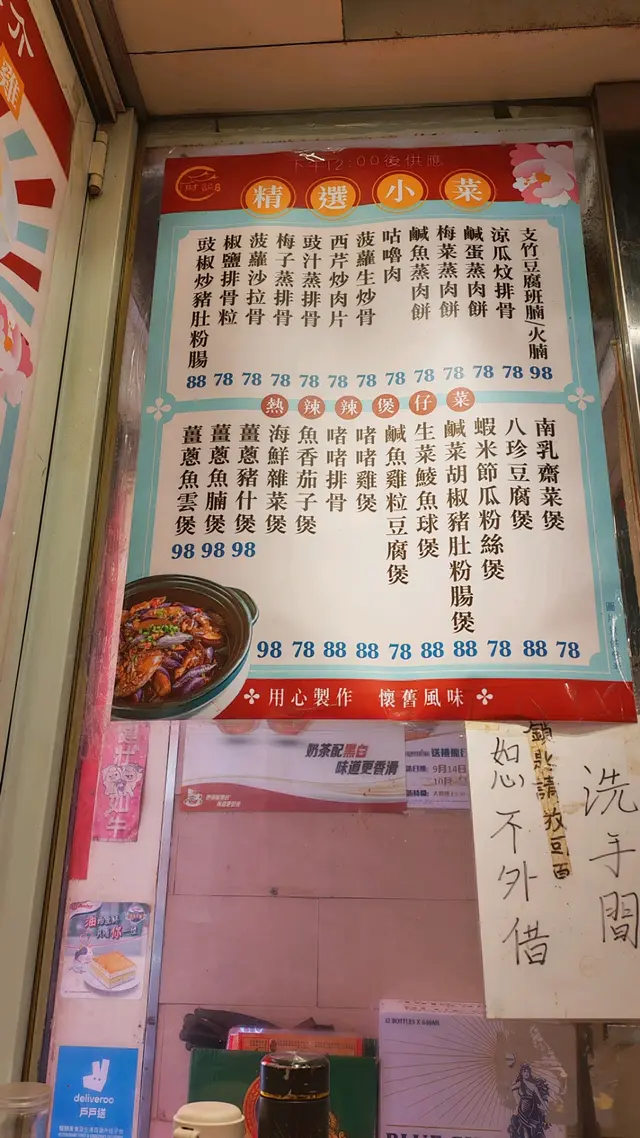 下午12:00後供應
精選小菜
支竹豆腐班腩/火腩 98
涼瓜炆排骨 78
鹹蛋蒸肉餅 78
梅菜蒸肉餅 78
鹹魚蒸肉餅 78
咕嚕肉 78
菠蘿生炒骨 78
西芹炒肉片 78
豉汁蒸排骨 78
梅子蒸排骨 78
菠蘿沙拉骨 78
椒鹽排骨粒 78
豉椒炒豬肚粉腸 88
熱辣辣煲仔菜
南乳齋菜煲 78
八珍豆腐煲 88
蝦米節瓜粉絲煲 78
鹹菜胡椒豬肚粉腸煲 88
生菜鯪魚球煲 88
鹹魚雞粒豆腐煲 78
啫啫雞煲 88
啫啫排骨 88
魚香茄子煲 78
海鮮雜菜煲 98
薑蔥豬什煲 98
薑蔥魚腩煲 98
薑蔥魚雲煲 98
用心製作 懷舊風味
奶茶配黑白
味道更香滑
9月14日
10月
洗手間
鎖匙請放回面
恕不外借
如牛
deliveroo
戶戶送
12 BOTTLES X 640ML
雞